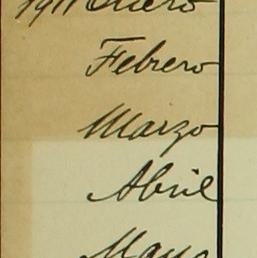 1911 Enero
Febrero
Marzo
Abril
Mayo